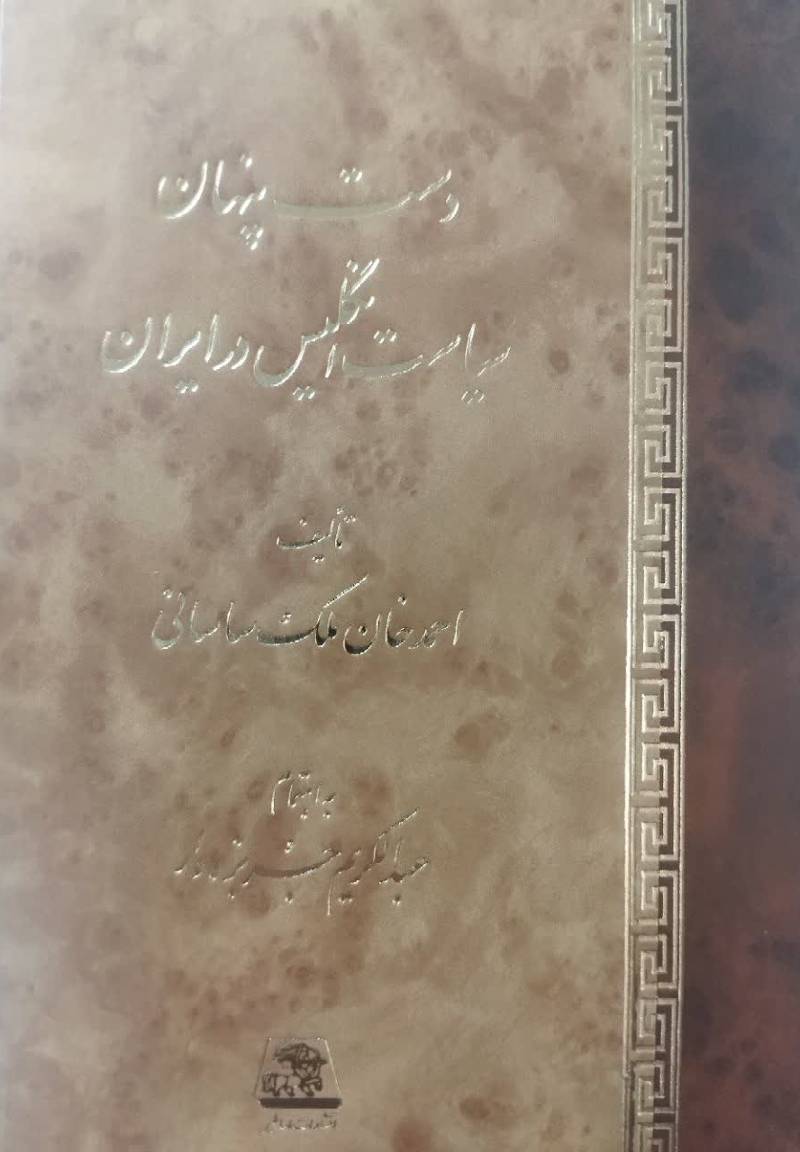 دست پنهان
سیاست انگلیس در ایران
تألیف
احمدخان ملک ساسانی
به اهتمام
عبدالکریم جربزه‌دار
انتشارات اساطیر